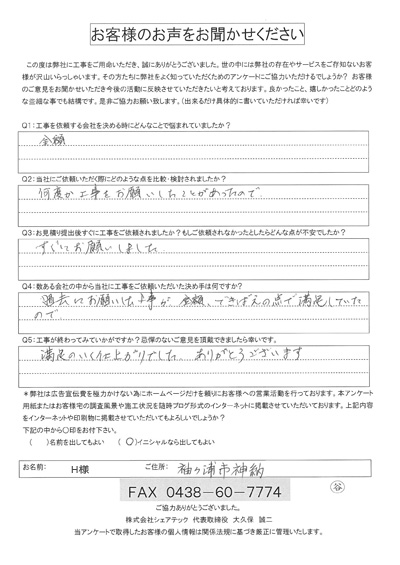 お客様のお声をお聞かせください
この度は弊社に工事をご用命いただき、誠にありがとうございました。世の中には弊社の存在やサービスをご存知ないお客
様が沢山いらっしゃいます。その方たちに弊社をよく知っていただくためのアンケートにご協力いただけるでしょうか？ お客様
のご意見をお聞かせいただき今後の活動に反映させていただきたいと考えております。良かったこと、嬉しかったことどのよう
な些細な事でも結構です。是非ご協力お願い致します。（出来るだけ具体的に書いていただければ幸いです）
Q1：工事を依頼する会社を決める時にどんなことで悩まれていましたか？
金額
Q2：当社にご依頼いただく際にどのような点を比較・検討されましたか？
何度か工事をお願いしたことがあったので
Q3：お見積り提出後すぐに工事をご依頼されましたか？もしご依頼されなかったとしたらどんな点が不安でしたか？
すぐにお願いしました
Q4：数ある会社の中から当社に工事をご依頼いただいた決め手は何ですか？
過去にお願いした工事が、金額、できばえの点で満足していた
ので
Q5：工事が終わってみていかがですか？忌憚のないご意見を頂戴できましたら幸いです。
満足のいく仕上がりでした ありがとうございます
＊弊社は広告宣伝費を極力かけない為にホームページだけを頼りにお客様への営業活動を行っております。本アンケート
用紙またはお客様宅の調査風景や施工状況を随時ブログ形式のインターネットに掲載させていただいております。上記内容
をインターネットや印刷物に掲載させていただいてもよろしいでしょうか？
下記の中から〇印をお付下さい。
（ ）名前を出してもよい （〇）イニシャルなら出してもよい
お名前： H様 ご住所： 袖ヶ浦市神納
FAX 0438－60－7774 谷
ご協力ありがとうございました。
株式会社シェアテック 代表取締役 大久保 誠二
当アンケートで取得したお客様の個人情報は関係法規に基づき厳正に管理いたします。